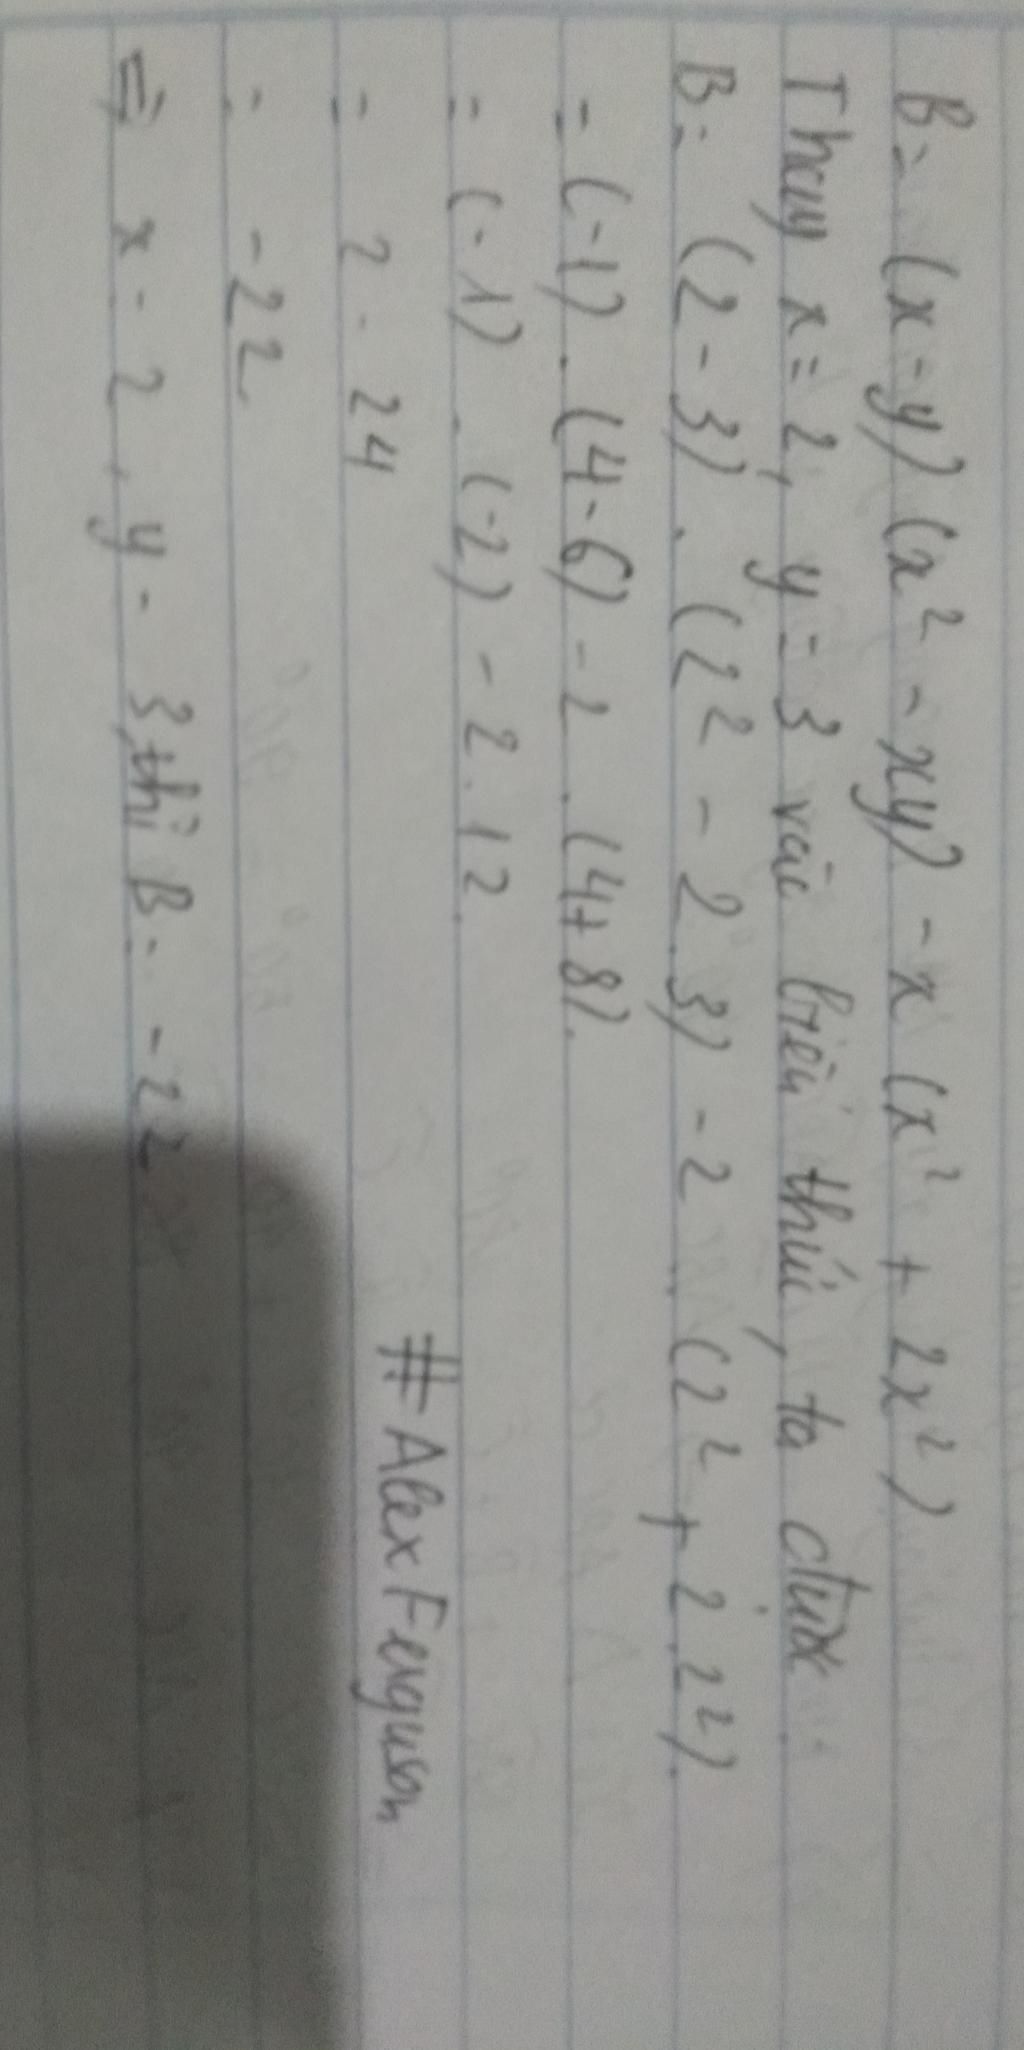 B = (x - y) (x² - xy) - x (x² + 2x²)
Thay x = 2, y = 3 vào biểu thức, ta được
B = (2 - 3) . (2² - 2.3) - 2 . (2² + 2.2²).
= (-1) . (4 - 6) - 2 . (4 + 8).
= (-1) . (-2) - 2 . 12.
= 2 - 24
= -22.
⇒ x = 2, y = 3, thì B = -22
# Alex Ferguson